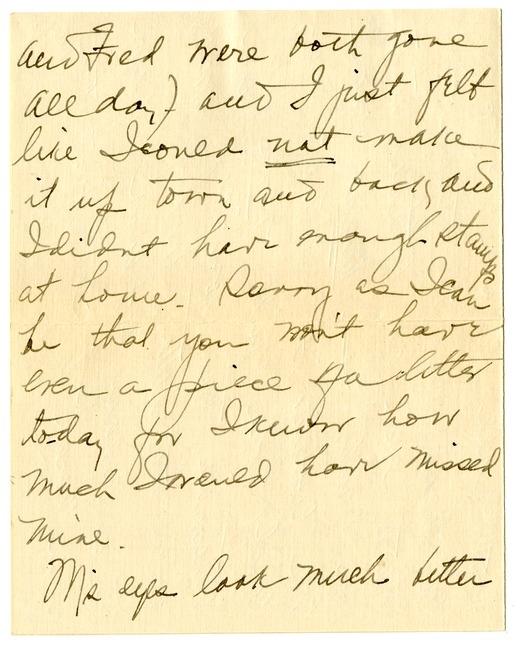 and Fred were both gone
all day) and I just felt
like I could not make
it up town and back, and
I didnt have enough stamps
at home. Sorry as I can
be that you won't have
even a piece of a letter
today for I know how
much I would have missed
mine.
M's eyes look much better